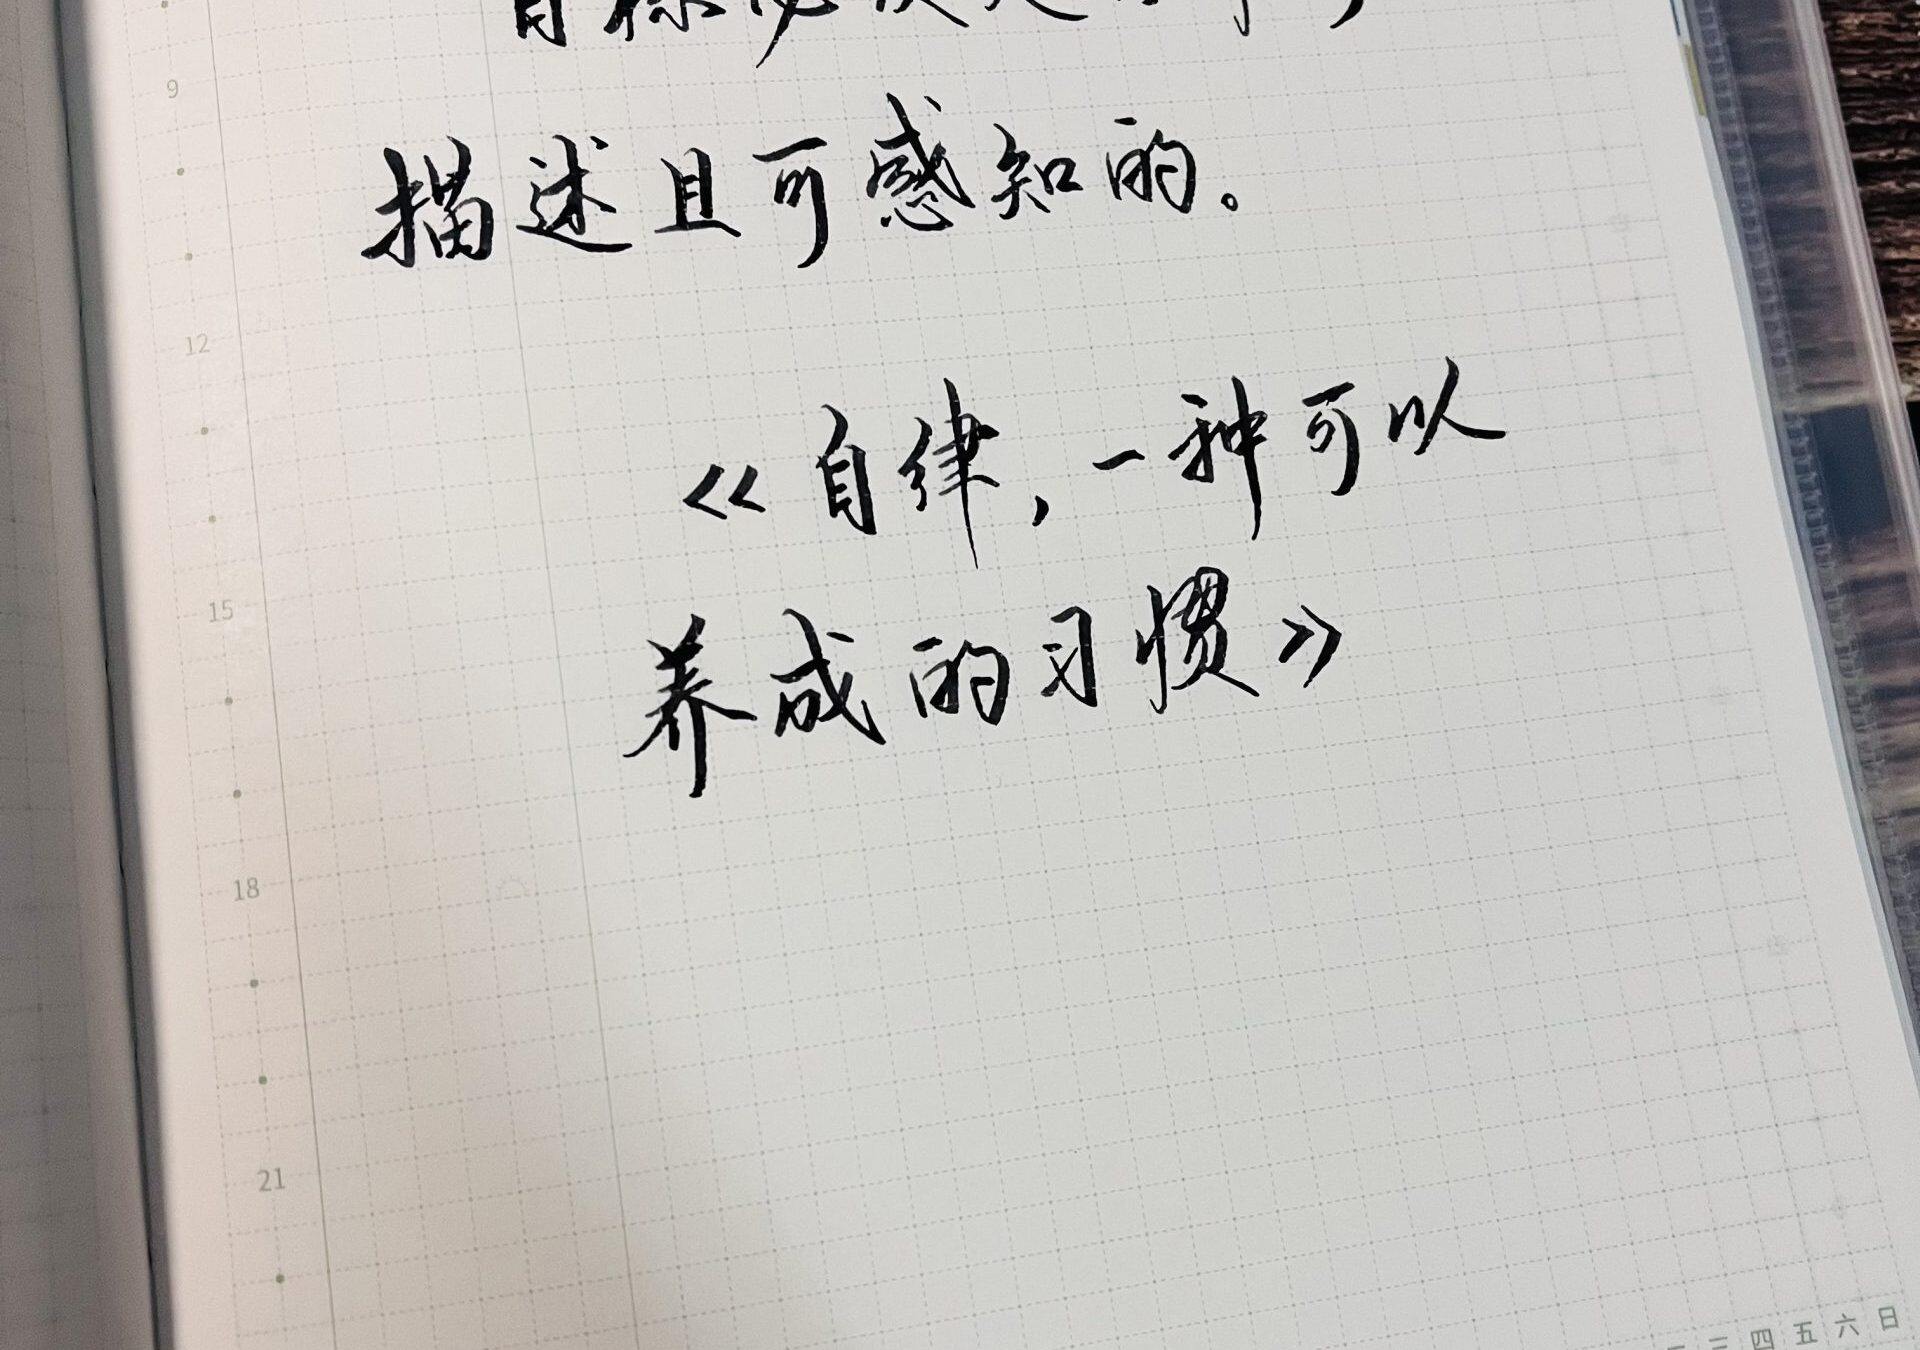 目标必须是
9
描述且可感知的。
12
《自律，一种可以
15
养成的习惯》
18
21
三 四 五 六 日